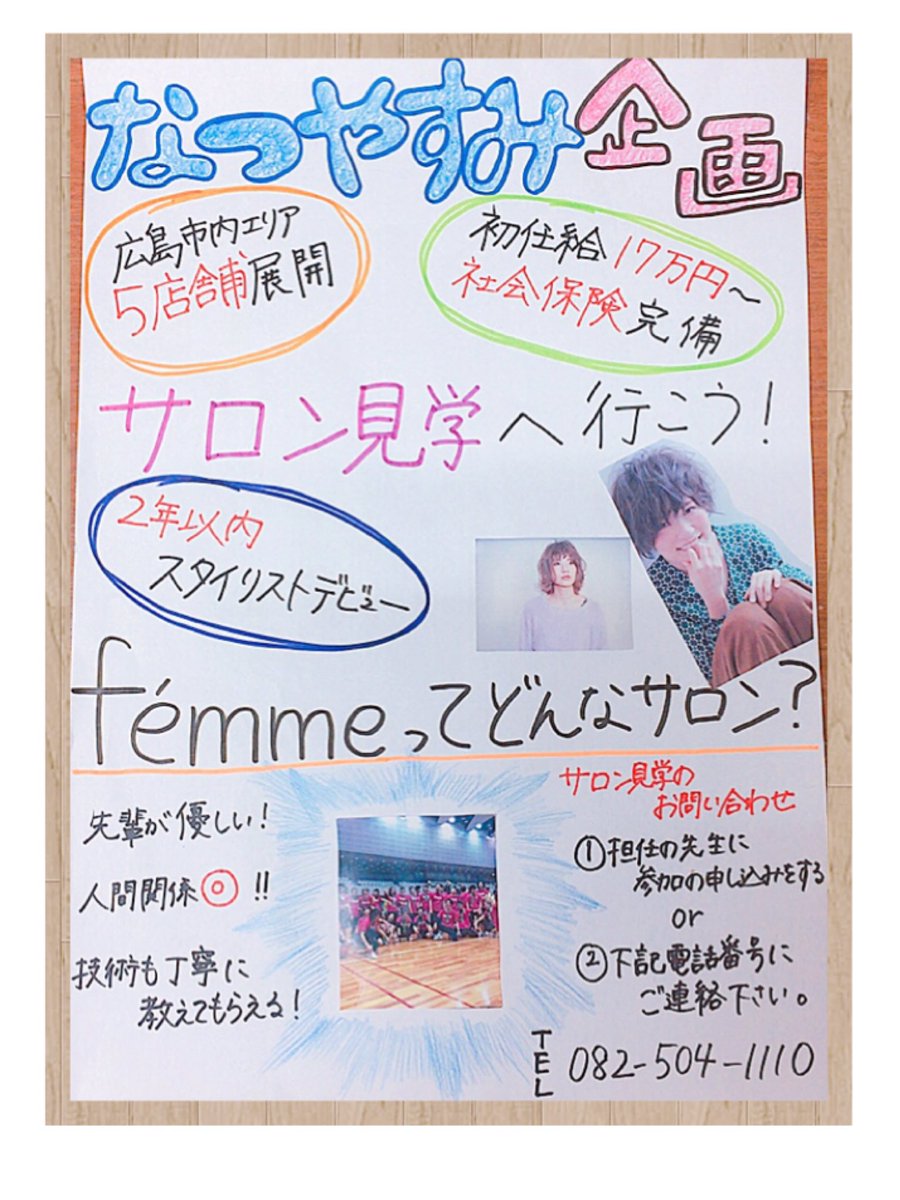 なつやすみ企画
広島市内エリア
5店舗展開
初任給17万円〜
社会保険完備
サロン見学へ行こう!
2年以内
スタイリストデビュー
fémmeってどんなサロン?
先輩が優しい!
人間関係◎!!
技術も丁寧に
教えてもらえる!
サロン見学の
お問い合わせ
①担任の先生に
参加の申し込みをする
or
②下記電話番号に
ご連絡下さい。
TEL 082-504-1110